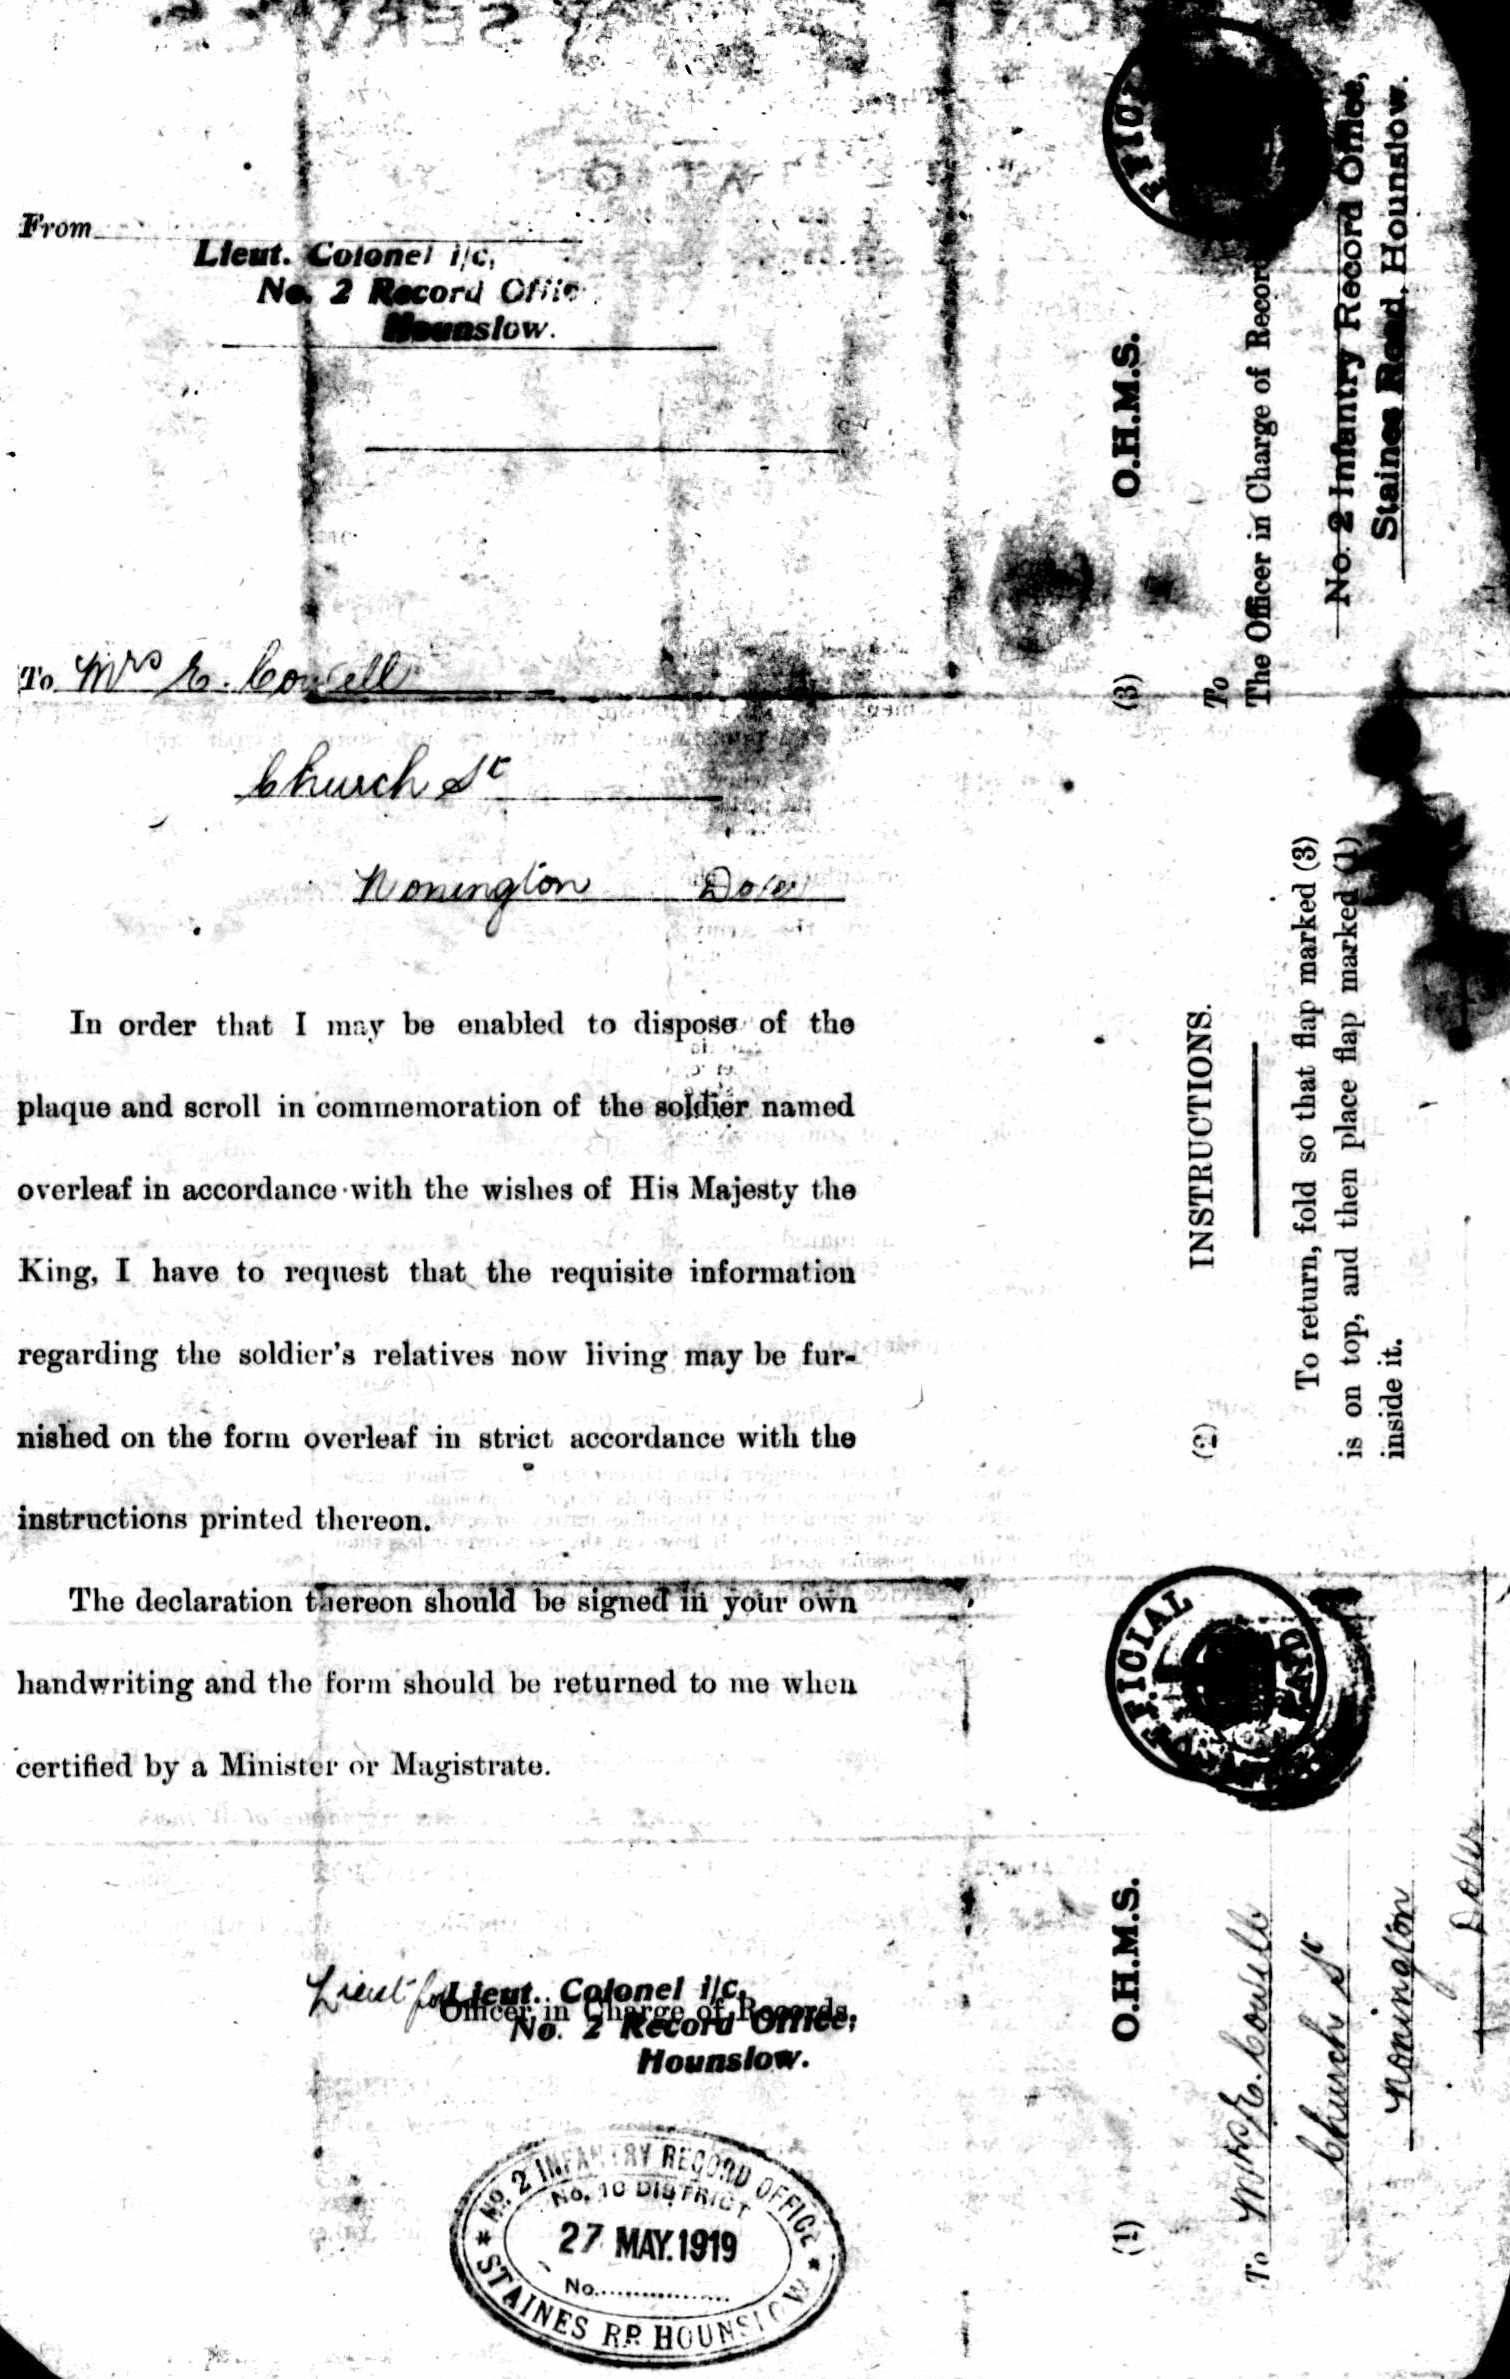 From
Lieut. Colonel i/c,
No. 2 Record Office
Hounslow.
To Mrs E. Cowell
Church St
Nonington Dover
In order that I may be enabled to dispose of the
plaque and scroll in commemoration of the soldier named
overleaf in accordance with the wishes of His Majesty the
King, I have to request that the requisite information
regarding the soldier's relatives now living may be fur-
nished on the form overleaf in strict accordance with the
instructions printed thereon.
The declaration thereon should be signed in your own
handwriting and the form should be returned to me when
certified by a Minister or Magistrate.
Lieut for Lieut. Colonel i/c,
Officer in Charge of Records.
No. 2 Record Office,
Hounslow.
No. 2 INFANTRY RECORD OFFICE
No. 10 DISTRICT
27 MAY. 1919
No.
STAINES RD. HOUNSLOW
(3)
O.H.M.S.
To
The Officer in Charge of Records
No. 2 Infantry Record Office,
Staines Road, Hounslow.
(2)
INSTRUCTIONS.
To return, fold so that flap marked (3)
is on top, and then place flap marked (1)
inside it.
(1)
O.H.M.S.
OFFICIAL
To Mrs E. Cowell
Church St
Nonington
Dover